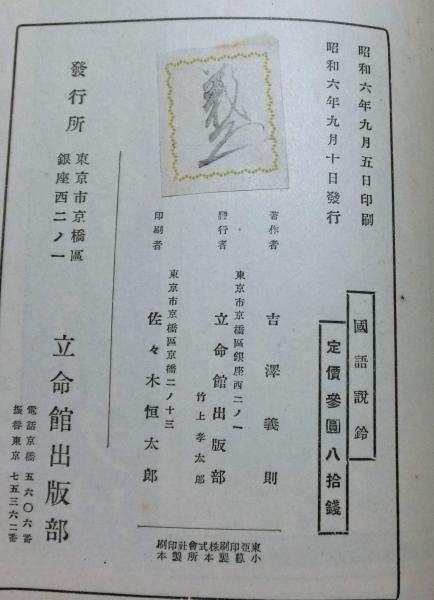 昭和六年九月五日印刷
昭和六年九月十日發行
國語說鈴
定價參圓八拾錢
著作者 吉澤義則
東京市京橋區銀座西二ノ一
發行者 立命館出版部
竹上孝太郎
東京市京橋區京橋二ノ十三
印刷者 佐々木恒太郎
東亞印刷株式會社印刷
小製本所製本
發行所
東京市京橋區
銀座西二ノ一
立命館出版部
電話京橋五六〇六番
振替東京七五三六二番